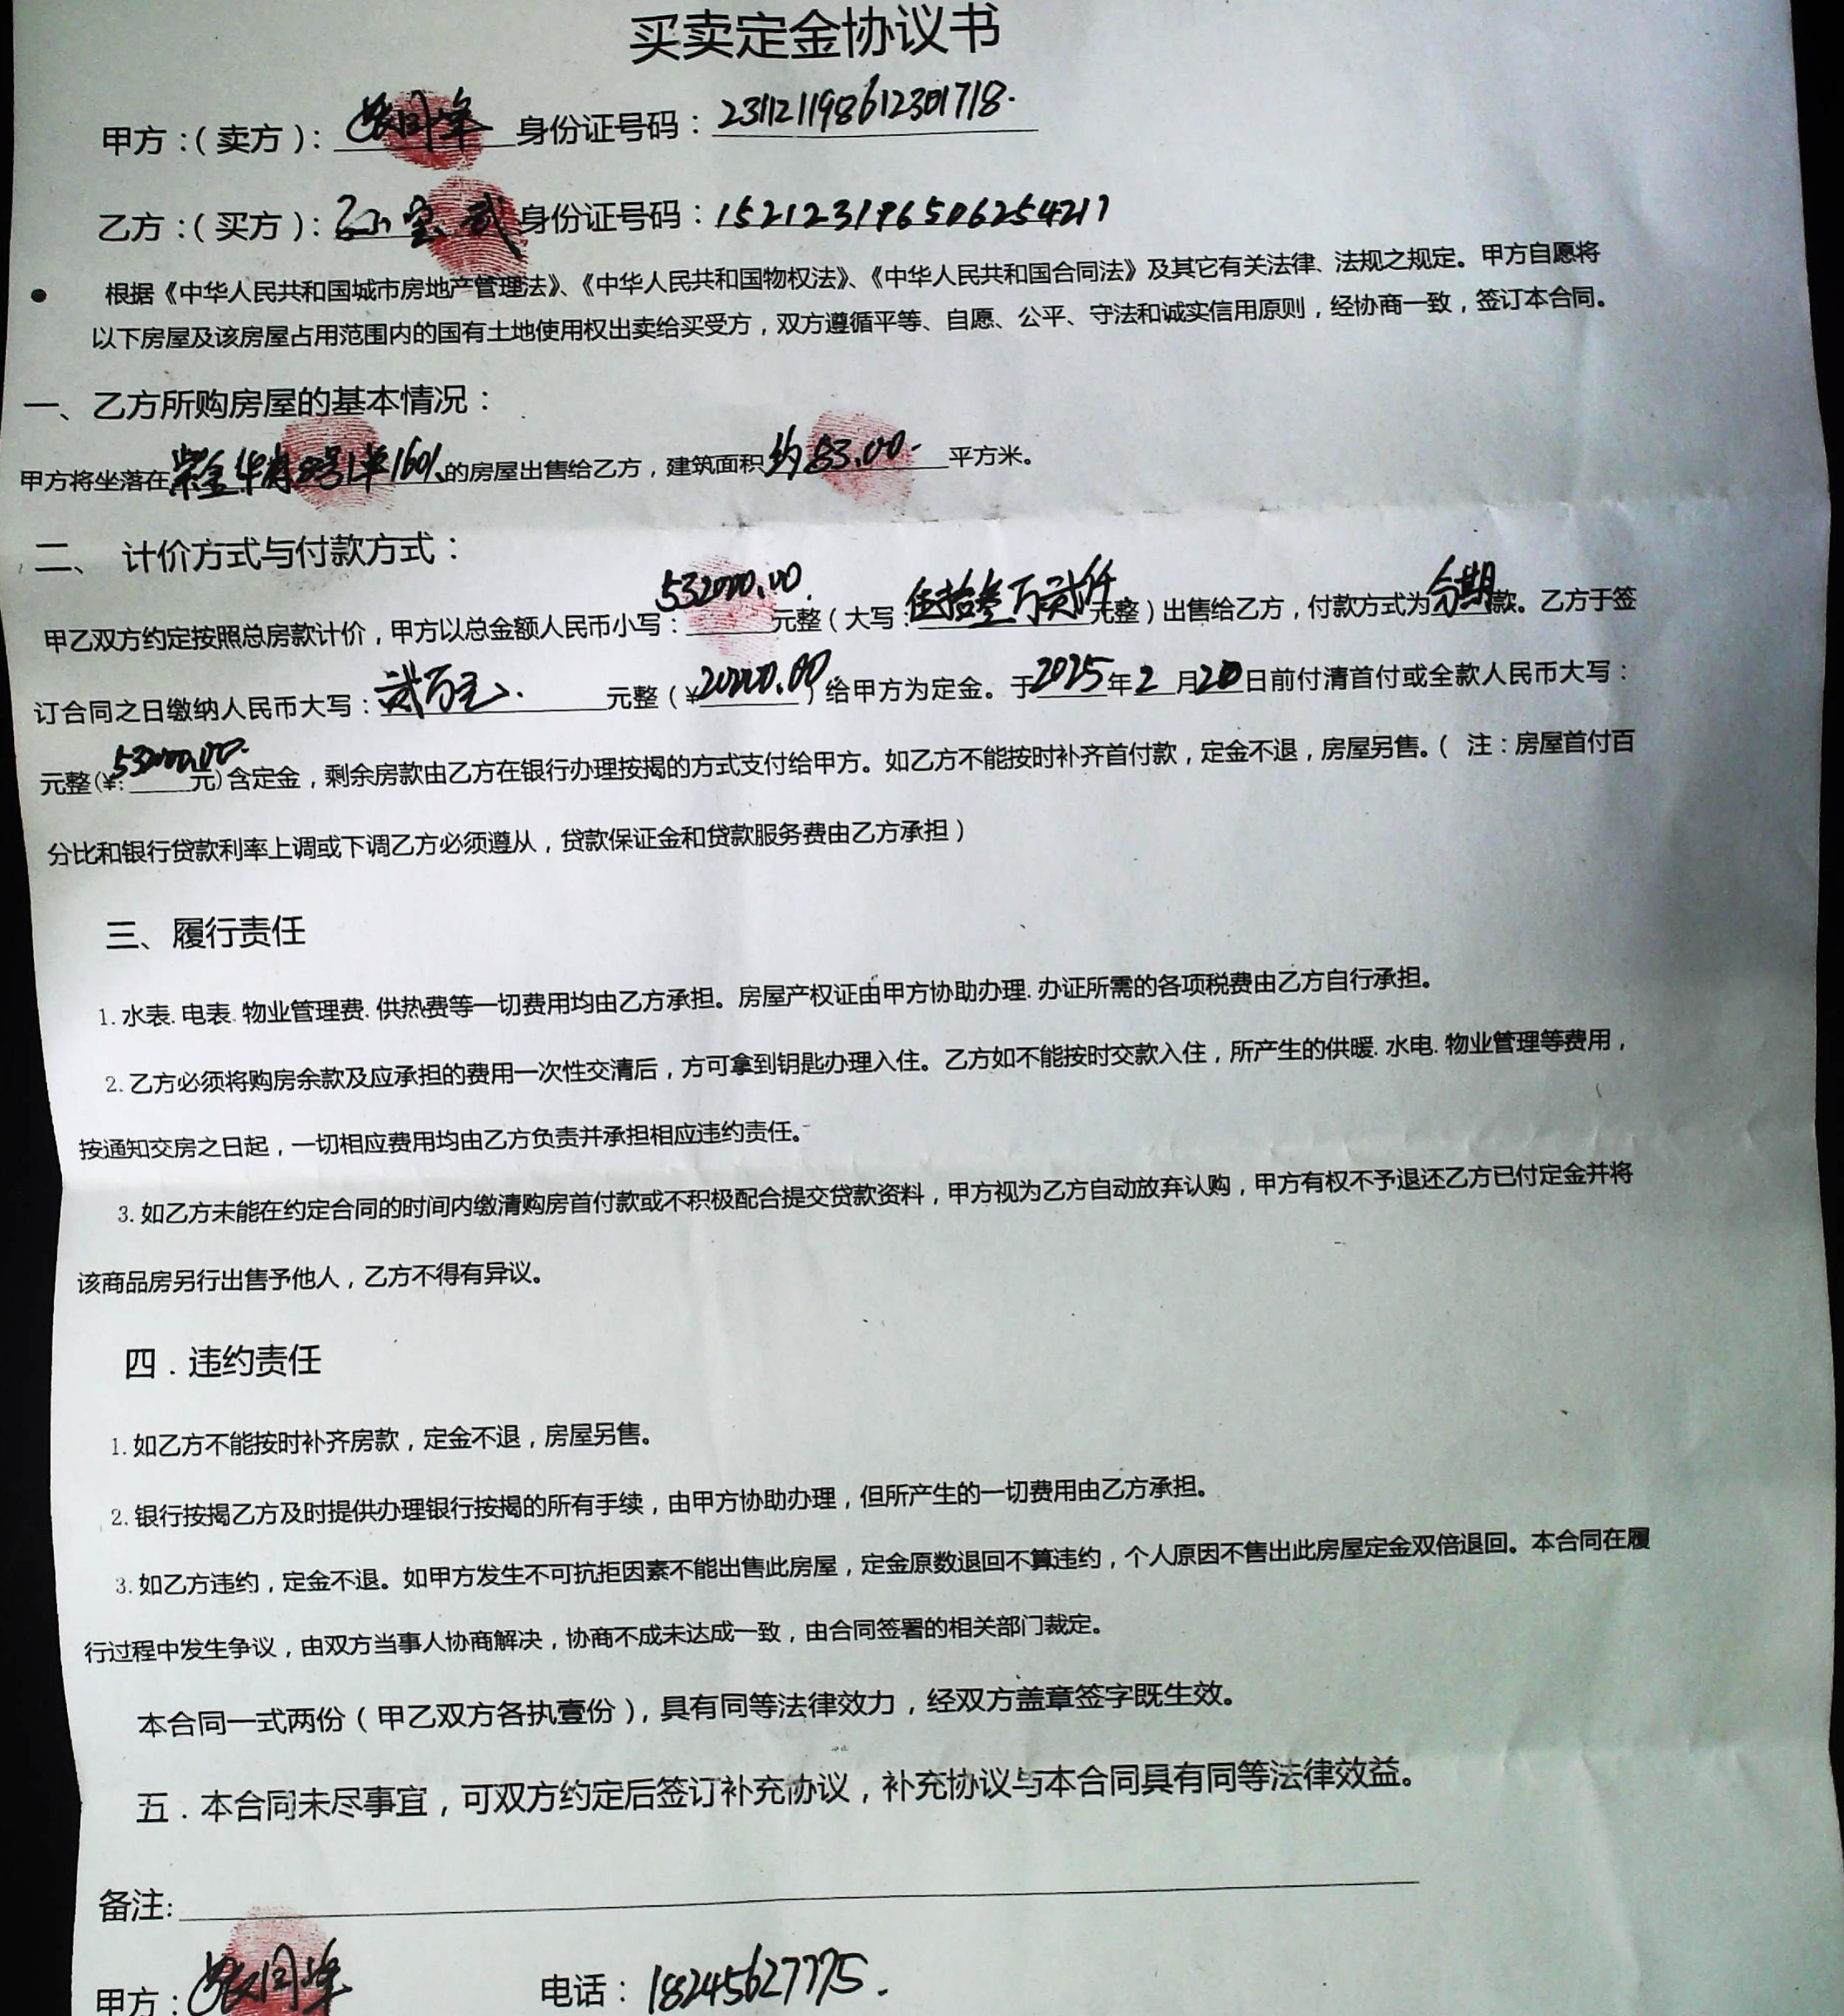 买卖定金协议书
甲方:(卖方):张同军 身份证号码:231121198612301718.
乙方:(买方):孙宝武 身份证号码:152123196506254217
● 根据《中华人民共和国城市房地产管理法》、《中华人民共和国物权法》、《中华人民共和国合同法》及其它有关法律、法规之规定。甲方自愿将
以下房屋及该房屋占用范围内的国有土地使用权出卖给买受方,双方遵循平等、自愿、公平、守法和诚实信用原则,经协商一致,签订本合同。
一、乙方所购房屋的基本情况:
甲方将坐落在紫金华府 号1单1601的房屋出售给乙方,建筑面积约83.00.平方米。
二、 计价方式与付款方式:
甲乙双方约定按照总房款计价,甲方以总金额人民币小写:532000.00.元整(大写:伍拾叁万贰仟元整)出售给乙方,付款方式为分期款。乙方于签
订合同之日缴纳人民币大写:贰万元.元整(¥20000.00)给甲方为定金。于2025年2月20日前付清首付或全款人民币大写:
元整(¥:532000.00.元)含定金,剩余房款由乙方在银行办理按揭的方式支付给甲方。如乙方不能按时补齐首付款,定金不退,房屋另售。( 注:房屋首付百
分比和银行贷款利率上调或下调乙方必须遵从,贷款保证金和贷款服务费由乙方承担)
三、履行责任
1.水表.电表.物业管理费.供热费等一切费用均由乙方承担。房屋产权证由甲方协助办理.办证所需的各项税费由乙方自行承担。
2.乙方必须将购房余款及应承担的费用一次性交清后,方可拿到钥匙办理入住。乙方如不能按时交款入住,所产生的供暖.水电.物业管理等费用,
按通知交房之日起,一切相应费用均由乙方负责并承担相应违约责任。
3.如乙方未能在约定合同的时间内缴清购房首付款或不积极配合提交贷款资料,甲方视为乙方自动放弃认购,甲方有权不予退还乙方已付定金并将
该商品房另行出售予他人,乙方不得有异议。
四.违约责任
1.如乙方不能按时补齐房款,定金不退,房屋另售。
2.银行按揭乙方及时提供办理银行按揭的所有手续,由甲方协助办理,但所产生的一切费用由乙方承担。
3.如乙方违约,定金不退。如甲方发生不可抗拒因素不能出售此房屋,定金原数退回不算违约,个人原因不售出此房屋定金双倍退回。本合同在履
行过程中发生争议,由双方当事人协商解决,协商不成未达成一致,由合同签署的相关部门裁定。
本合同一式两份(甲乙双方各执壹份),具有同等法律效力,经双方盖章签字既生效。
五.本合同未尽事宜,可双方约定后签订补充协议,补充协议与本合同具有同等法律效益。
备注:
甲方:张同军 电话:18245627775.